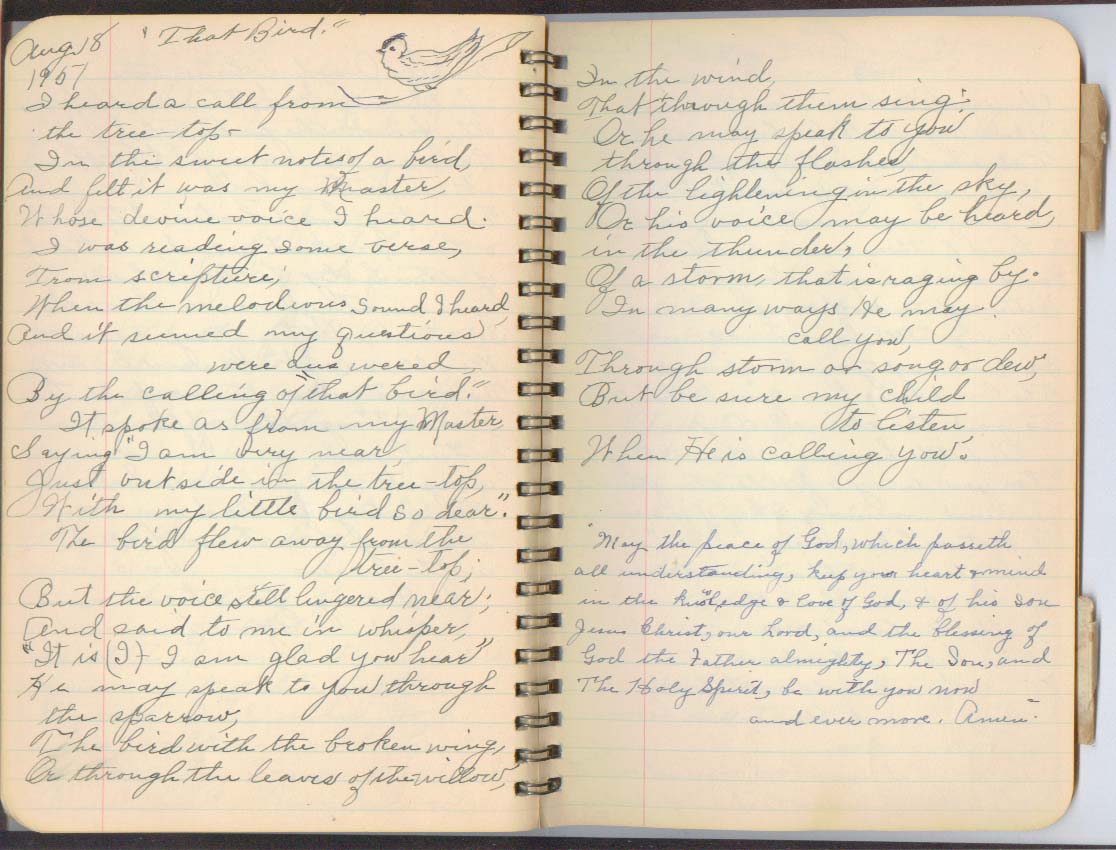 Aug. 18 "That Bird."
1957
I heard a call from
the tree-top-
In the sweet notes of a bird,
And felt it was my Master,
Whose devine voice I heard.
I was reading some verse,
From scripture;
When the melodious sound I heard,
And it seemed my questions
were answered
By the calling of "that bird."
It spoke as from my Master,
Saying "I am very near,
Just outside in the tree-top,
With my little bird so dear."
The bird flew away from the
tree-top;
But the voice still lingered near;
And said to me in whisper,
"It is (I)- I am glad you hear"
He may speak to you through
the sparrow,
The bird with the broken wing,
Or through the leaves of the willow,
In the wind,
That through them sing;
Or he may speak to you
through the flashes,
Of the lightening in the sky,
Or his voice may be heard,
in the thunder,
Of a storm, that is raging by.
In many ways He may
call you,
Through storm or song or dew,
But be sure my child
to listen,
When He is calling you.
"May the peace of God, which passeth
all understanding, keep your heart & mind
in the knowledge & love of God, & of his son
Jesus Christ, our Lord, and the blessing of
God the Father almighty, The Son, and
The Holy Spirit, be with you now
and ever more. Amen."